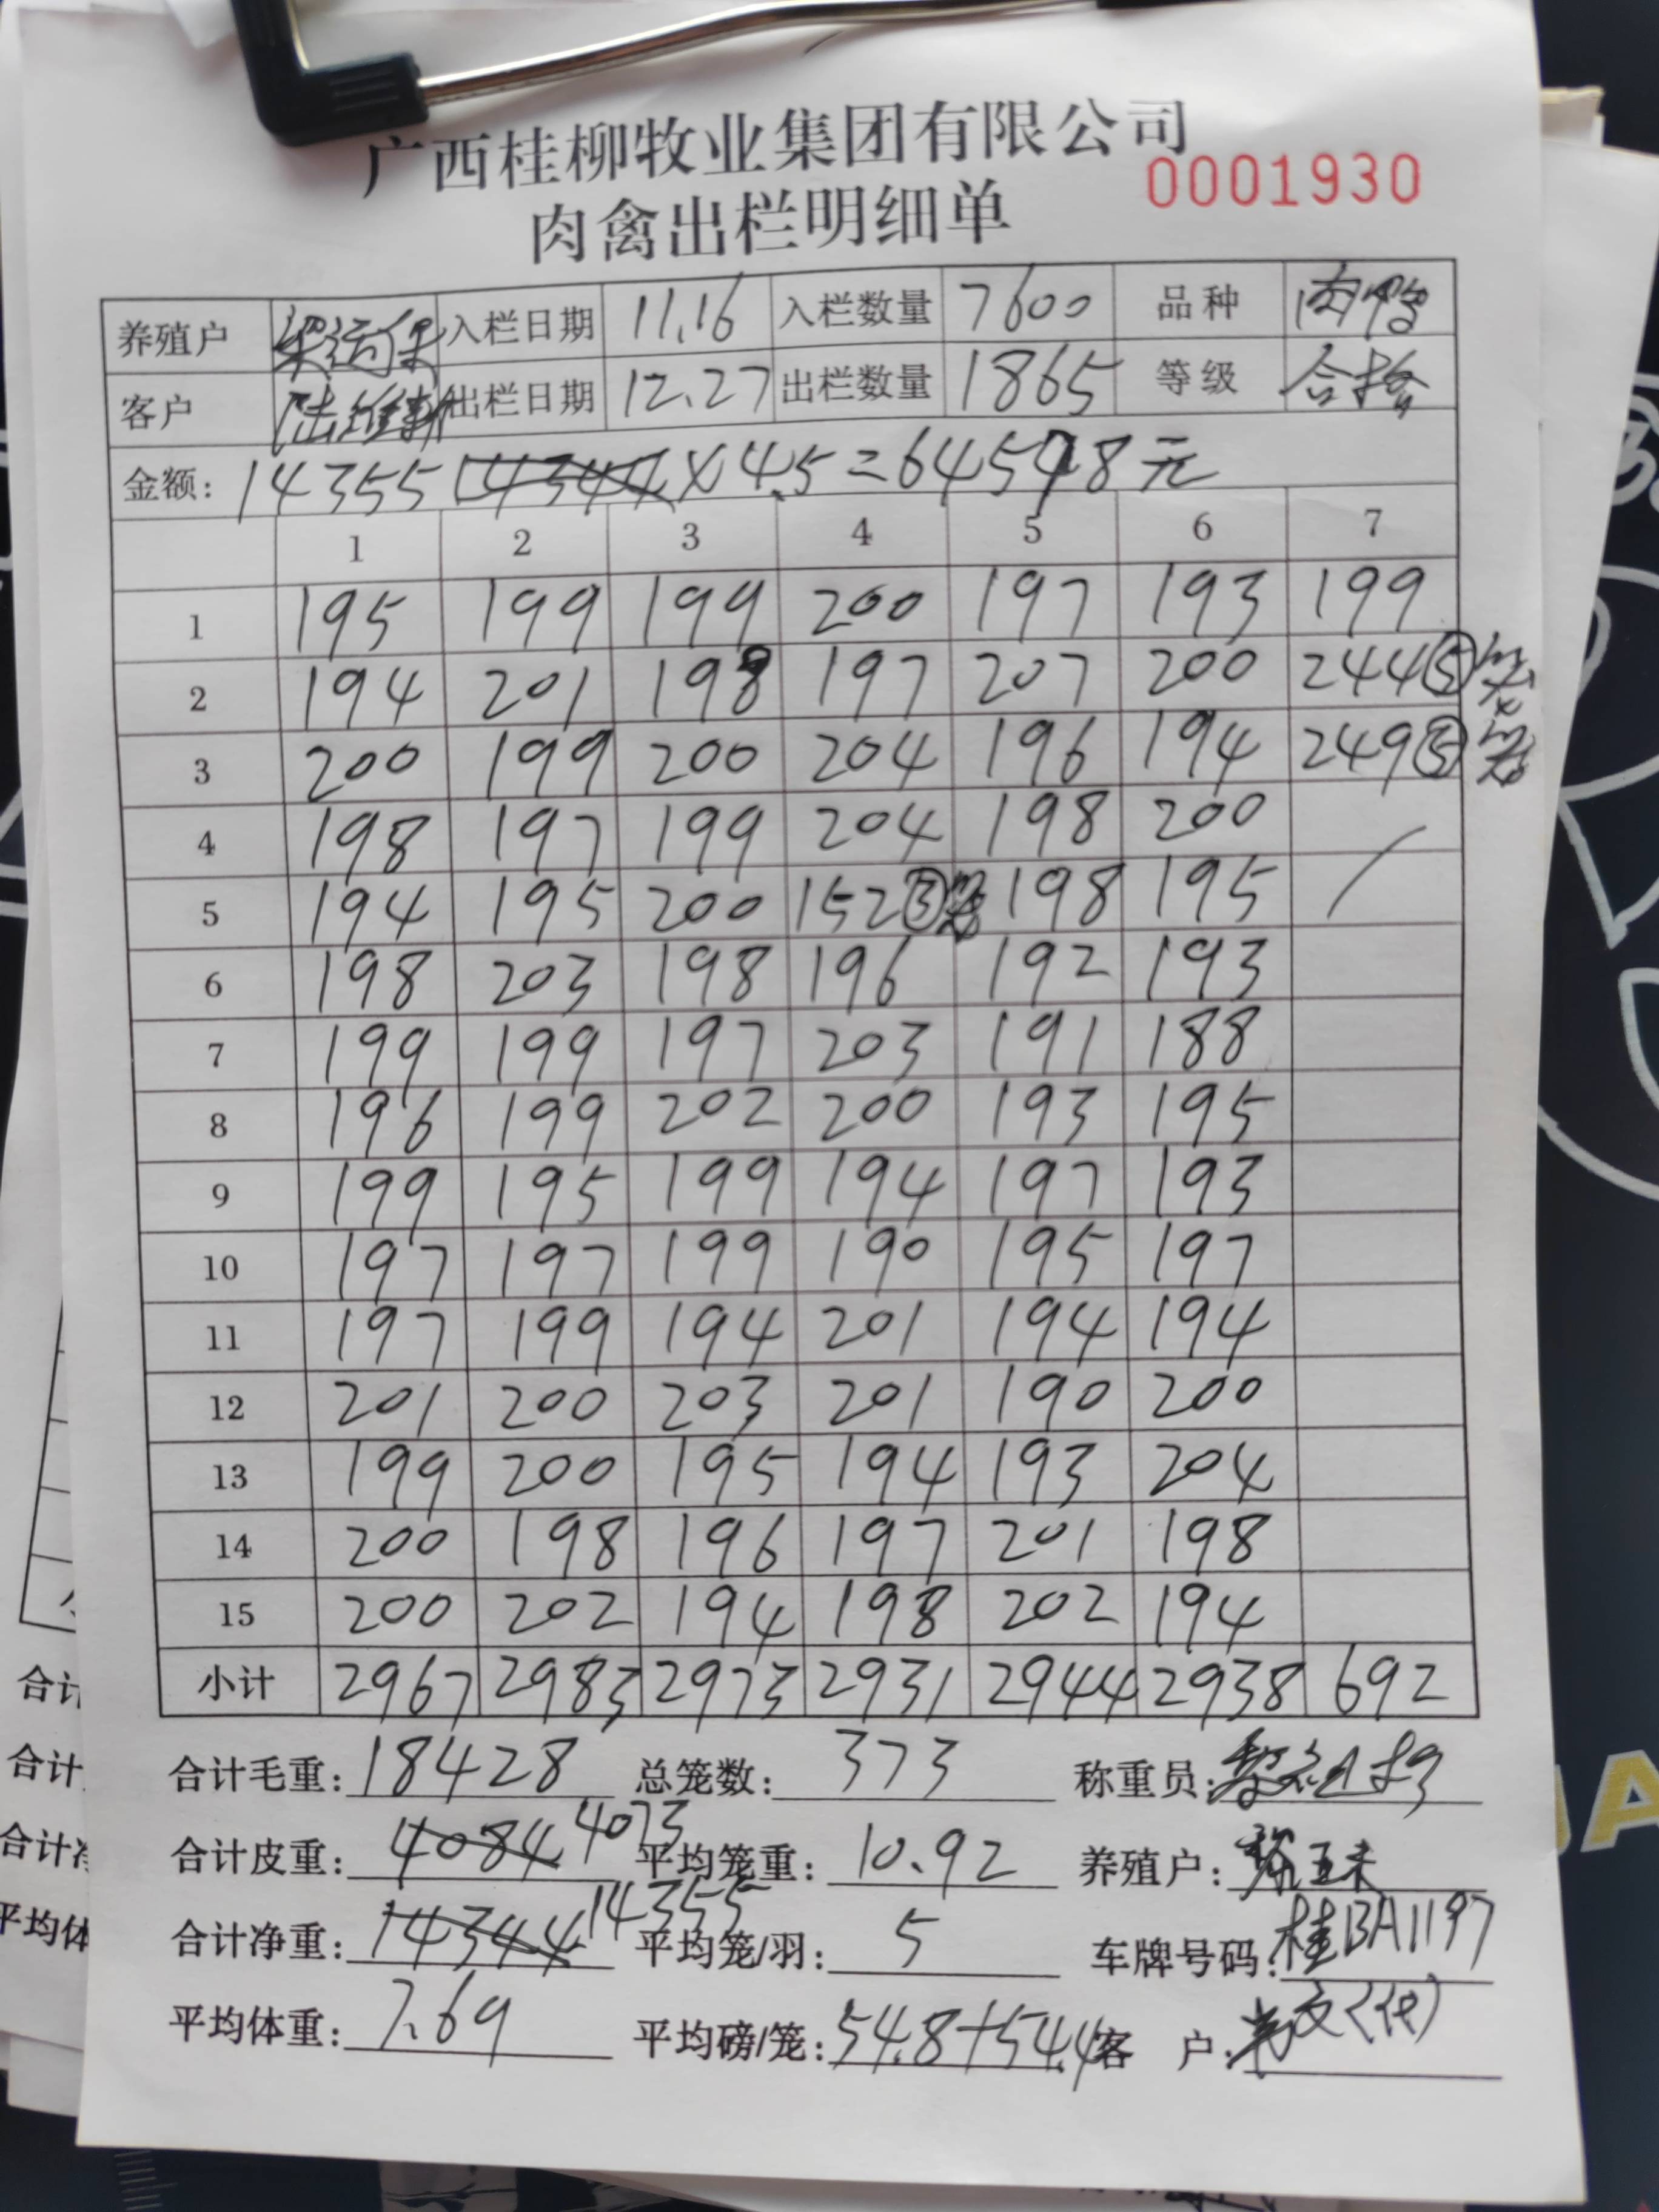 广西桂柳牧业集团有限公司
0001930
肉禽出栏明细单
养殖户 梁运保 入栏日期 11.16 入栏数量 7600 品种 肉鸭
客户 陆维新 出栏日期 12.27 出栏数量 1865 等级 合格
金额: 14355 14344 X 4.5 = 64598元
1 2 3 4 5 6 7
1 195 199 199 200 197 193 199
2 194 201 198 197 207 200 244⑤笼
3 200 199 200 204 196 194 249⑤笼
4 198 197 199 204 198 200
5 194 195 200 152③笼 198 195
6 198 203 198 196 192 193
7 199 199 197 203 191 188
8 196 199 202 200 193 195
9 199 195 199 194 197 193
10 197 197 199 190 195 197
11 197 199 194 201 194 194
12 201 200 203 201 190 200
13 199 200 195 194 193 204
14 200 198 196 197 201 198
15 200 202 194 198 202 194
小计 2967 2983 2973 2931 2944 2938 692
合计毛重: 18428 总笼数: 373 称重员:
合计皮重: 4084 4073 平均笼重: 10.92 养殖户:
合计净重: 14344 14355 平均笼/羽: 5 车牌号码: 桂BA1197
平均体重: 7.69 平均磅/笼: 54.8+54.4 客 户: (代)